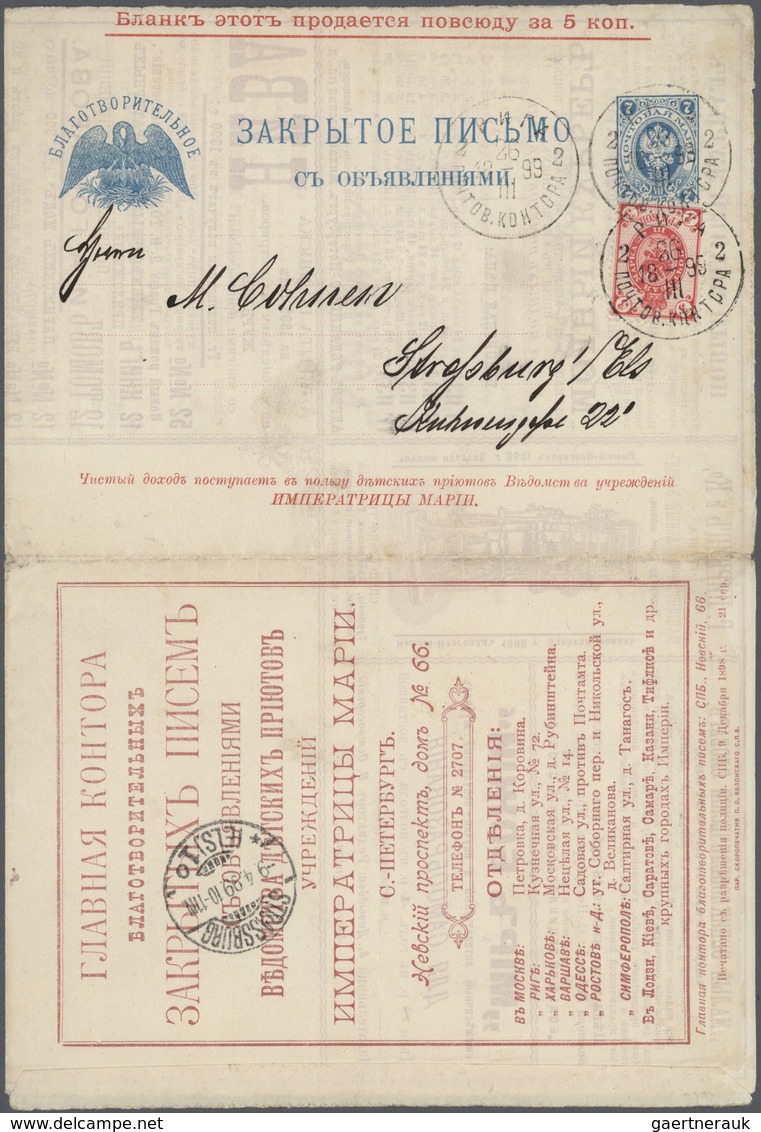 Бланкъ этотъ продается повсюду за 5 коп.
БЛАГОТВОРИТЕЛЬНОЕ
ЗАКРЫТОЕ ПИСЬМО
СЪ ОБЪЯВЛЕНІЯМИ.
РИГА
2 26 2
18 99
III
ПОЧТОВ. КОНТОРА
7 7
ПОЧТОВАЯ МАРКА
2 2
99
III
ПОЧТОВ. КОНТОРА
РИГА
2 26 2
18 99
III
ПОЧТОВ. КОНТОРА
Herrn
M. Cohnen
Strassburg /Els
22
Чистый доходъ поступаетъ въ пользу дѣтскихъ пріютовъ Вѣдомства учрежденій
ИМПЕРАТРИЦЫ МАРІИ.
ГЛАВНАЯ КОНТОРА
БЛАГОТВОРИТЕЛЬНЫХЪ
ЗАКРЫТЫХЪ ПИСЕМЪ
СЪ ОБЪЯВЛЕНІЯМИ
ВѢДОМСТВА ДѢТСКИХЪ ПРІЮТОВЪ
УЧРЕЖДЕНІЙ
ИМПЕРАТРИЦЫ МАРІИ.
С.-ПЕТЕРБУРГЪ.
Невскій проспектъ, домъ № 66.
ТЕЛЕФОНЪ № 2707.
ОТДѢЛЕНІЯ:
ВЪ МОСКВѢ: Петровка, д. Коровина.
„ РИГѢ: Кузнечная ул., № 72.
„ ХАРЬКОВѢ: Московская ул., д. Рубинштейна.
„ ВАРШАВѢ: Нецѣлая ул., № 14.
„ ОДЕССѢ: Садовая ул., противъ Почтамта.
„ РОСТОВѢ н-Д.: уг. Соборнаго пер. и Никольской ул.,
д. Великанова.
„ СИМФЕРОПОЛѢ: Салгирная ул., д. Танагосъ.
Въ Лодзи, Кіевѣ, Саратовѣ, Самарѣ, Казани, Тифлисѣ и др.
крупныхъ городахъ Имперіи.
Главная контора благотворительныхъ писемъ: СПБ., Невскій, 66.
Печатано съ разрѣшенія полиціи. СПБ. 9 Декабря 1898 г. 21 сер.
ПАР. СКОРОПЕЧАТНЯ П. О. ЯБЛОНСКАГО С.П.Б.
STRASSBURG
(ELS) 10
gaertnerauk
gaertnerauk